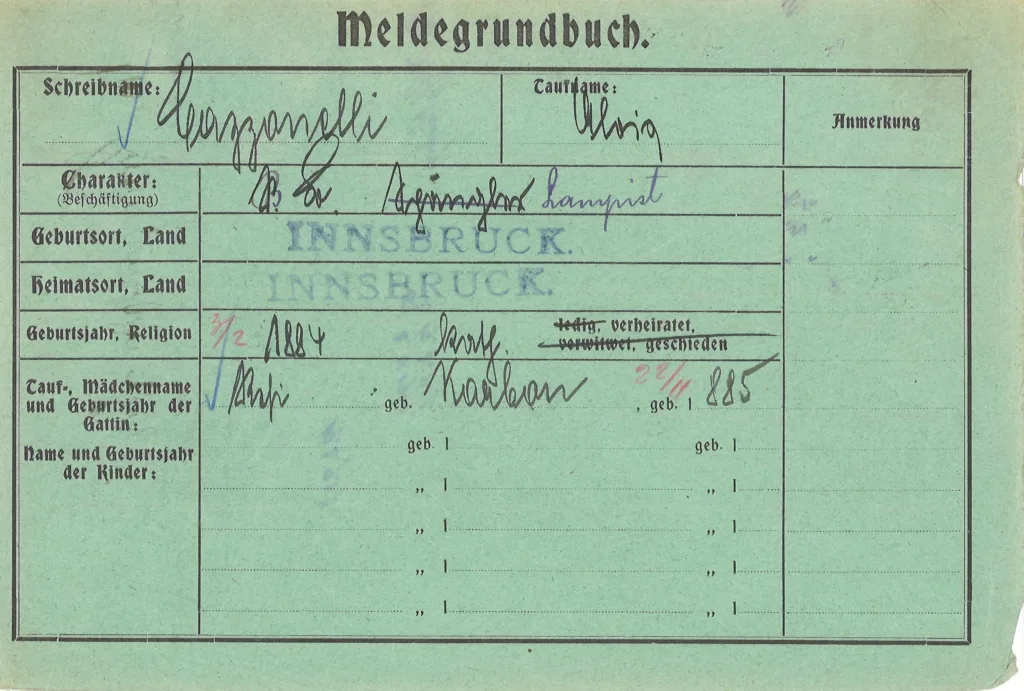 Meldegrundbuch.
Schreibname: Cazzanelli Taufname: Alois Anmerkung
Charakter: B. B. Lampist
(Beschäftigung)
Geburtsort, Land INNSBRUCK.
Heimatsort, Land INNSBRUCK.
Geburtsjahr, Religion 3/2 1884 kath. ledig, verheiratet,
verwitwet, geschieden
Tauf-, Mädchenname geb. Karbon 22/11 , geb. 1 885
und Geburtsjahr der
Gattin:
Name und Geburtsjahr geb. 1 geb. 1
der Kinder:
„ 1 „ 1
„ 1 „ 1
„ 1 „ 1
„ 1 „ 1